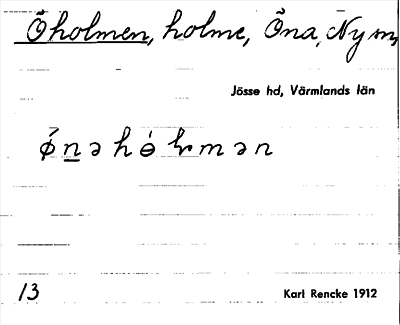 Öholmen, holme, Õna, Ny sn,
Jösse hd, Värmlands län
13
Karl Rencke 1912